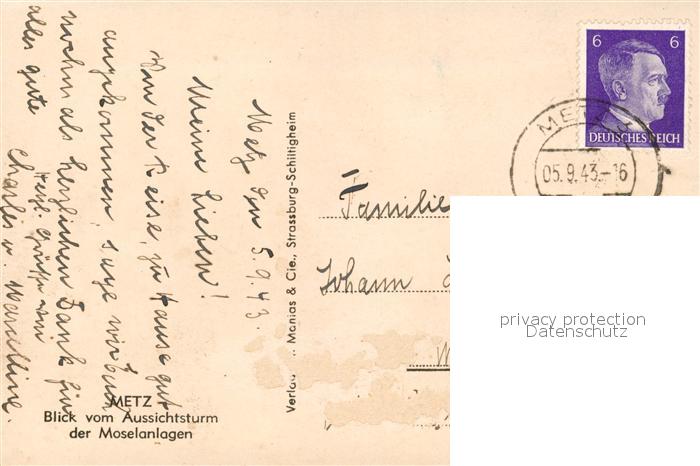 Metz den 5.9.43.
Meine Lieben!
Von der Reise, zu Hause gut
angekommen, sage wir Euch
nochmals herzlichen Dank für
alles gute
Herzl. Grüße von
Charles u. Marcelline.
METZ
Blick vom Aussichtsturm
der Moselanlagen
Verlag Manias & Cie., Strassburg-Schiltigheim
6 6
DEUTSCHES REICH
METZ
05.9.43.-16
Familie
Johann
privacy protection
Datenschutz